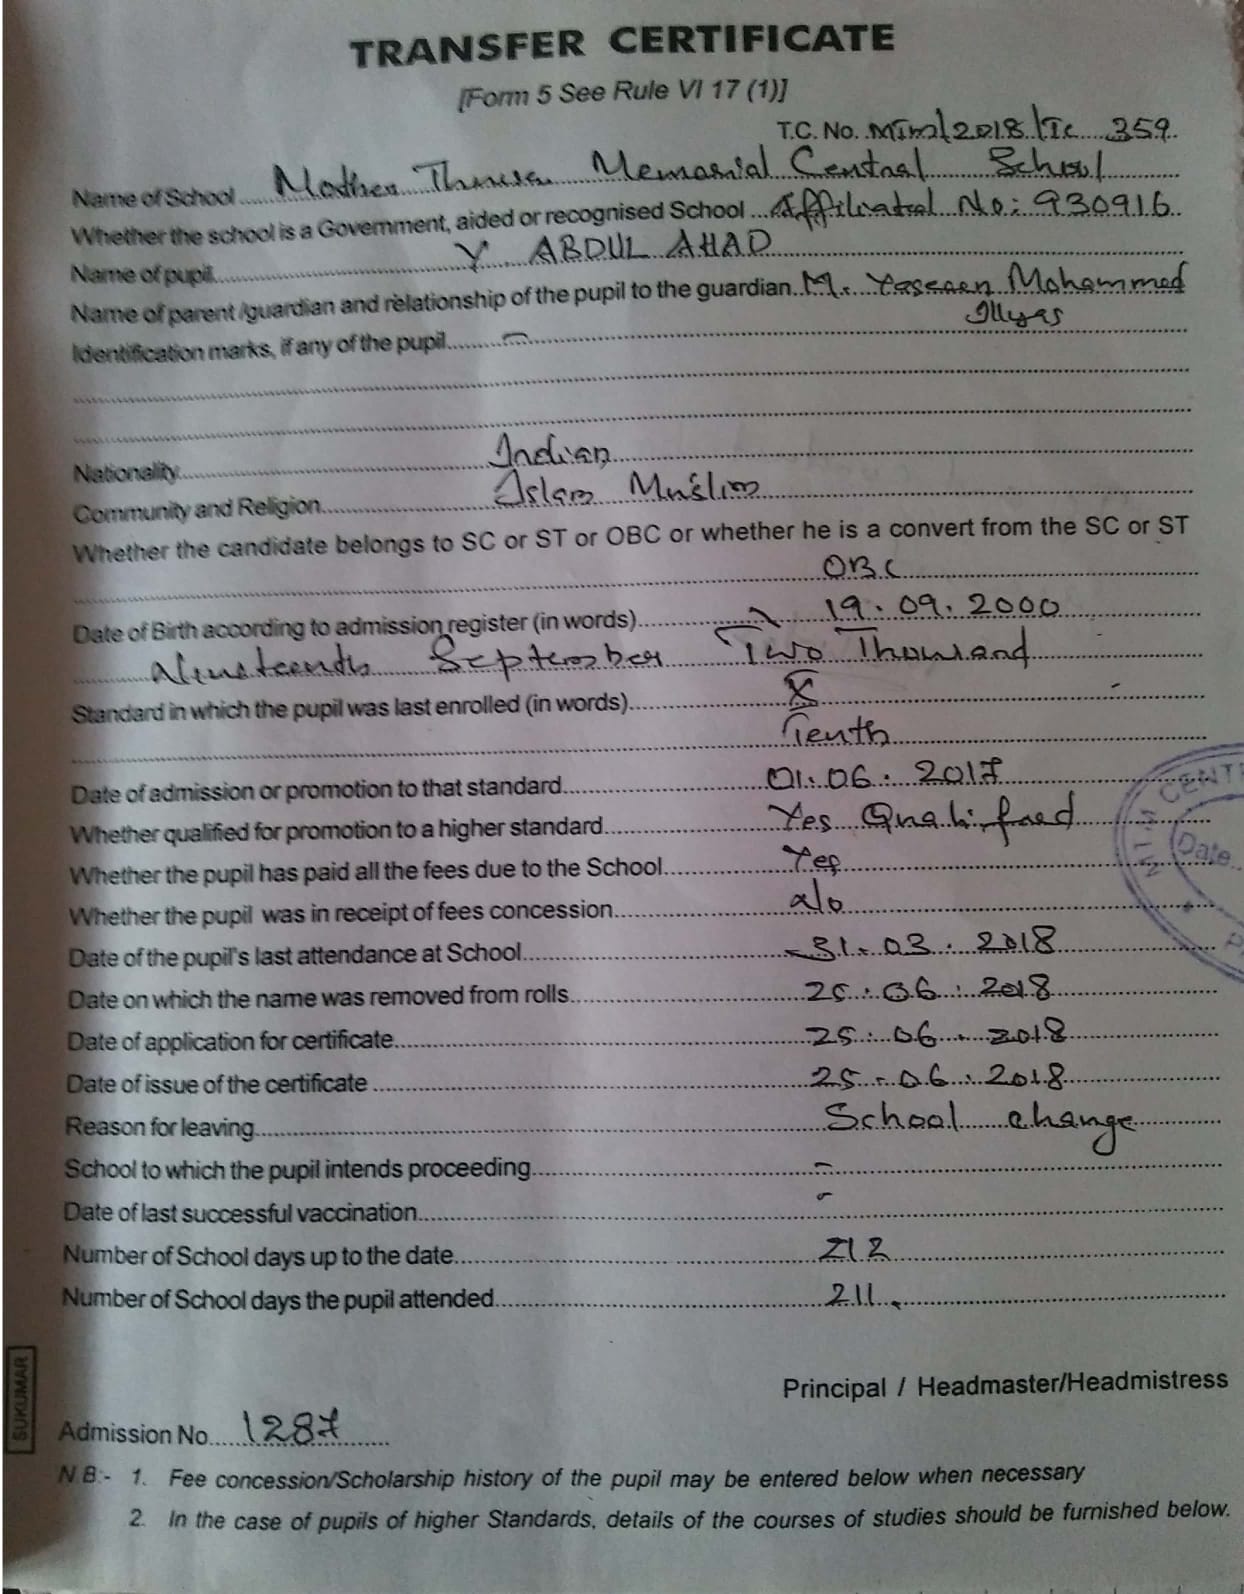 TRANSFER CERTIFICATE
[Form 5 See Rule VI 17 (1)]
T.C. No. MTM/2018/TC 359
Name of School Mother Theresa Memorial Central School
Whether the school is a Government, aided or recognised School Affiliated No: 930916
Name of pupil Y. ABDUL AHAD
Name of parent /guardian and relationship of the pupil to the guardian M. Yaseen Mohammed
Illyas
Identification marks, if any of the pupil –
Nationality Indian
Community and Religion Islam Muslim
Whether the candidate belongs to SC or ST or OBC or whether he is a convert from the SC or ST
OBC
Date of Birth according to admission register (in words) 19.09.2000
Nineteenth September Two Thousand
Standard in which the pupil was last enrolled (in words) X
Tenth
Date of admission or promotion to that standard 01.06.2017
Whether qualified for promotion to a higher standard Yes Qualified
Whether the pupil has paid all the fees due to the School Yes
Whether the pupil was in receipt of fees concession No
Date of the pupil's last attendance at School 31.03.2018
Date on which the name was removed from rolls 25.06.2018
Date of application for certificate 25.06.2018
Date of issue of the certificate 25.06.2018
Reason for leaving School change
School to which the pupil intends proceeding –
Date of last successful vaccination –
Number of School days up to the date 212
Number of School days the pupil attended 211
Principal / Headmaster/Headmistress
SUKUMAR
Admission No 1287
N.B:- 1. Fee concession/Scholarship history of the pupil may be entered below when necessary
2. In the case of pupils of higher Standards, details of the courses of studies should be furnished below.
Date